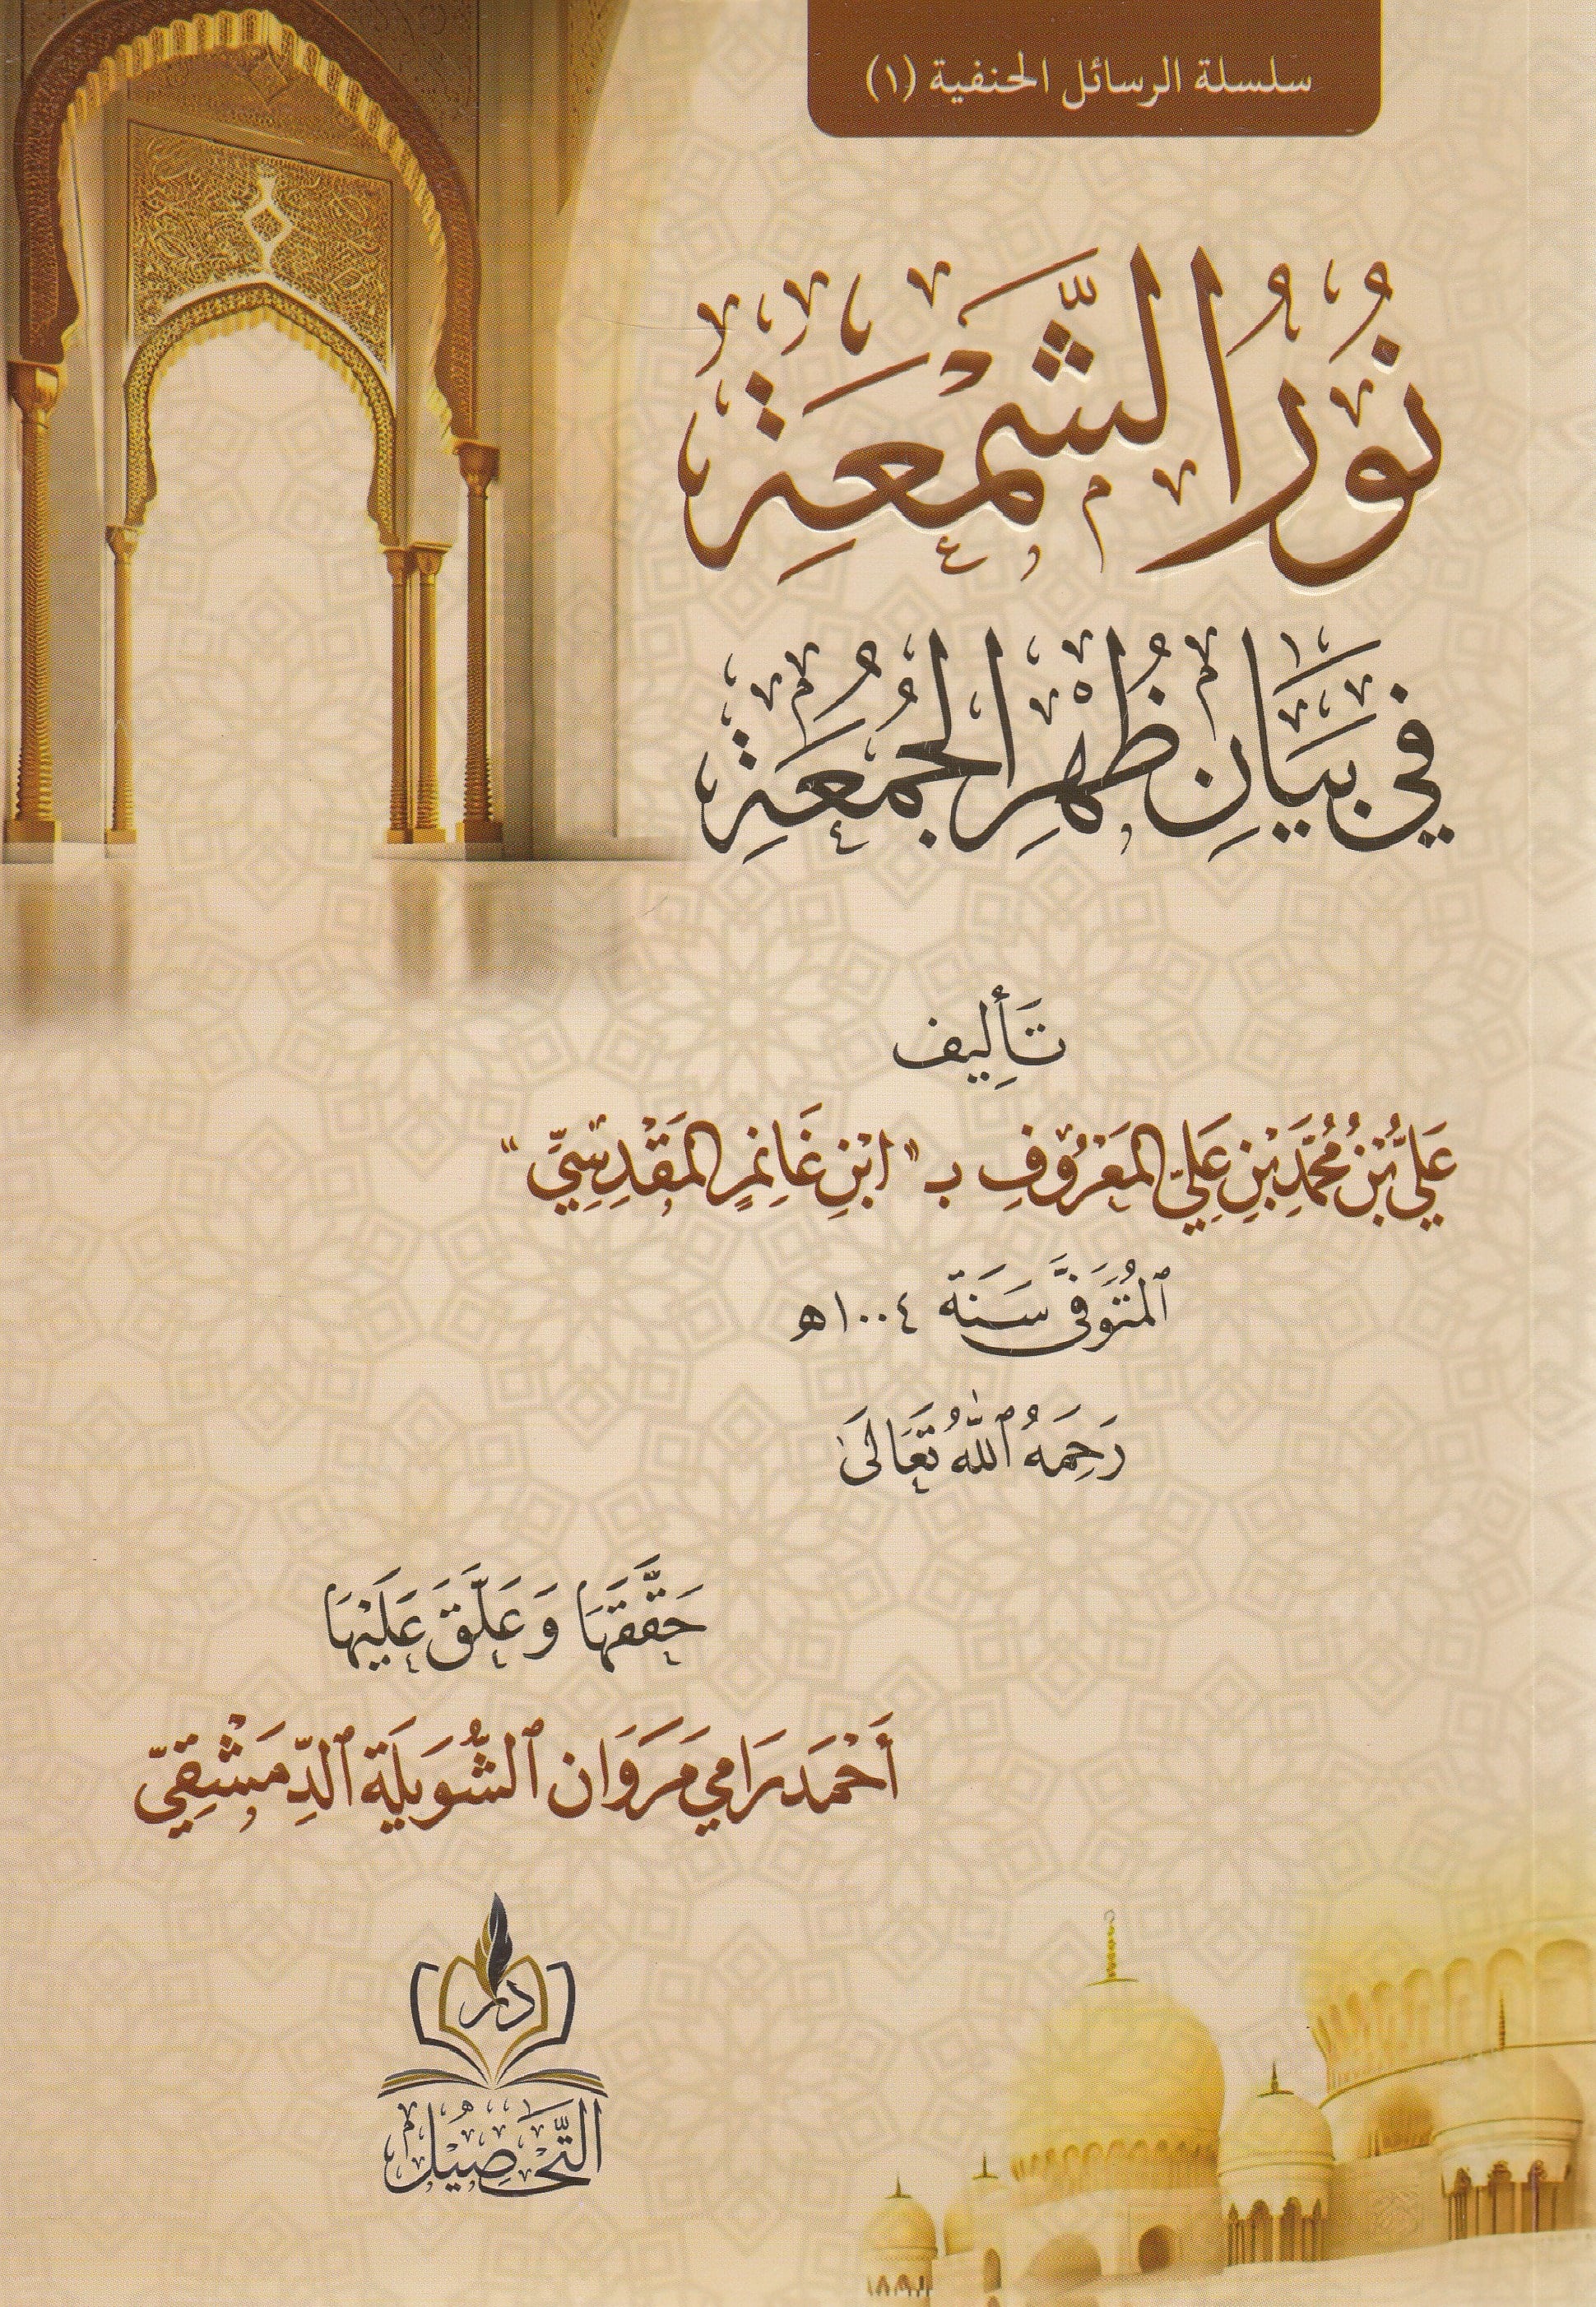 سلسلة الرسائل الحنفية (١)
نُورُ الشَّمْعَةِ
فِي بَيَانِ ظُهْرِ الجُمُعَةِ
تَأْلِيف
عَلِيُّ بْنُ مُحَمَّدِ بْنِ عَلِيٍّ المَعْرُوفِ بـ "ابْنِ غَانِمٍ المَقْدِسِيِّ"
ٱلمُتَوَفَّى سَنَة ١٠٠٤هـ
رَحِمَهُ ٱللَّهُ تَعَالَىٰ
حَقَّقَهَا وَعَلَّقَ عَلَيْهَا
أَحْمَد رَامِي مَرْوَان ٱلشُّوَيلَة ٱلدِّمَشْقِيّ
دار
التَّحْصِيل